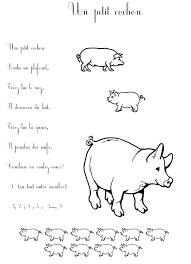 Un petit cochon
Un petit cochon
Pendu au plafond,
Tirez lui le nez,
Il donnera du lait,
Tirez lui la queue,
Il pondra des œufs,
Combien en voulez-vous?
(ou tout autre nombre)